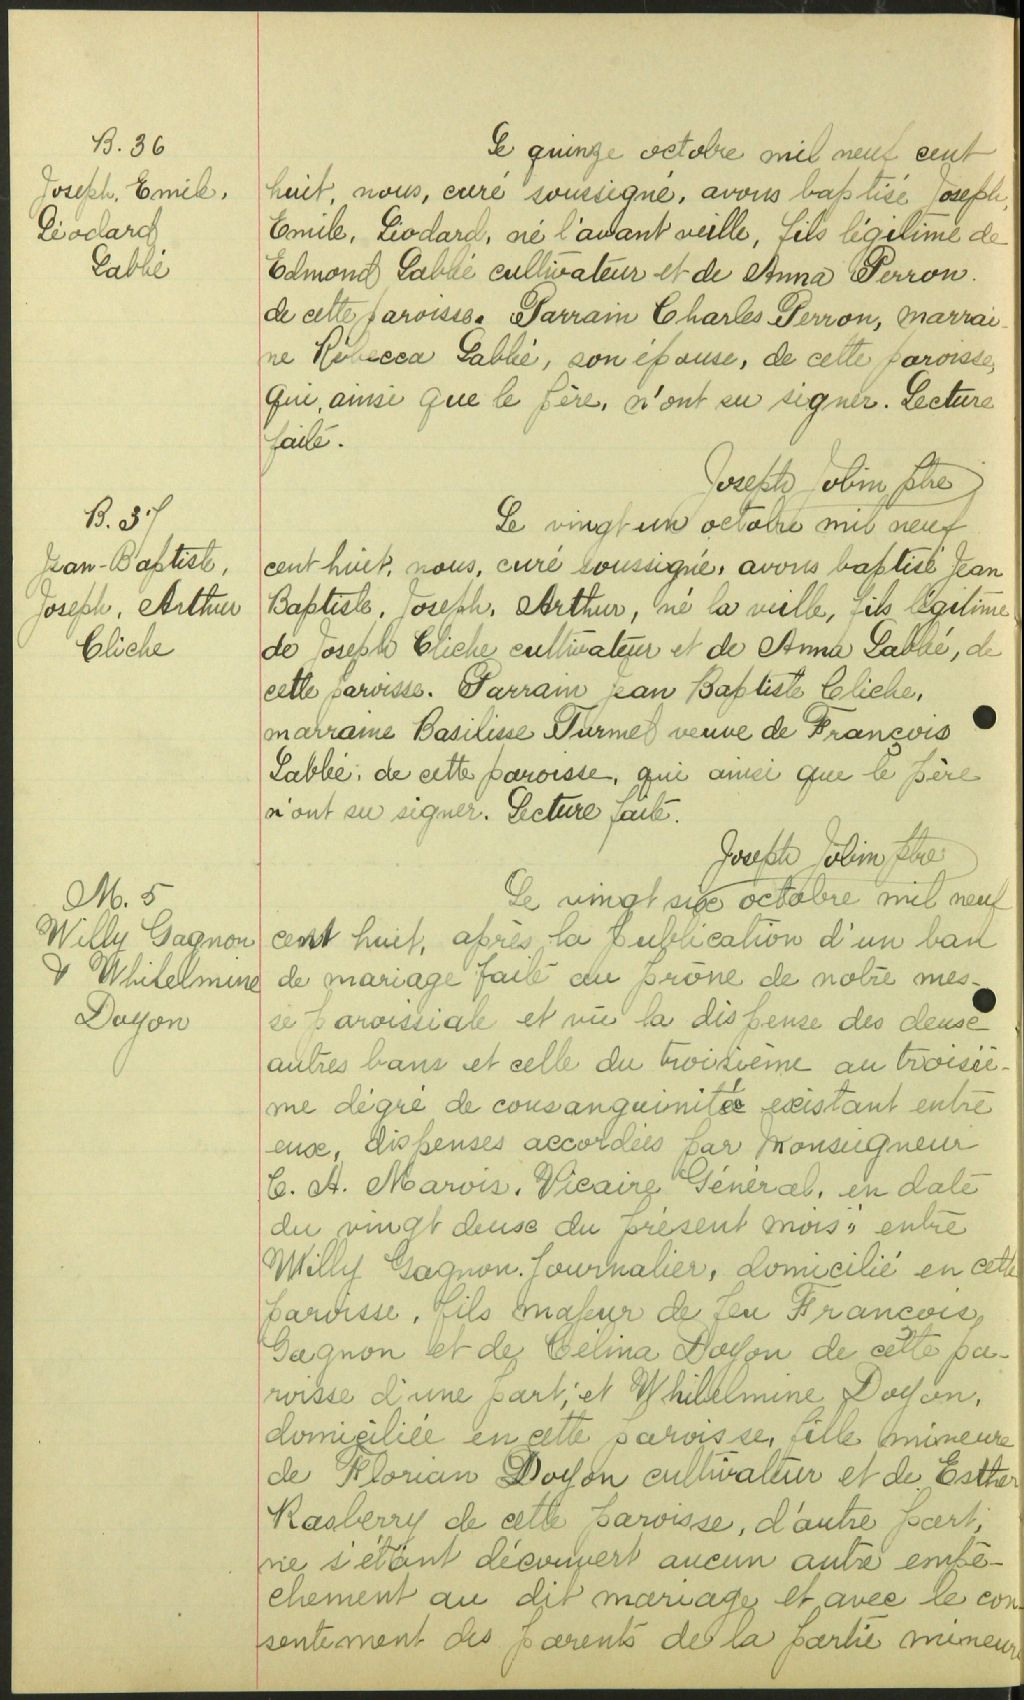 B. 36
Joseph, Emile,
Léodard
Labbé
Le quinze octobre mil neuf cent
huit, nous, curé soussigné, avons baptisé Joseph,
Emile, Léodard, né l'avant veille, fils légitime de
Edmond Labbé cultivateur et de Anna Perron
de cette paroisse. Parrain Charles Perron, marrai-
ne Rébecca Labbé, son épouse, de cette paroisse,
qui, ainsi que le père, n'ont su signer. Lecture
faite.
Joseph Jobin ptre
B. 37
Jean-Baptiste,
Joseph, Arthur
Cliche
Le vingt-un octobre mil neuf
cent huit, nous, curé soussigné, avons baptisé Jean
Baptiste, Joseph, Arthur, né la veille, fils légitime
de Joseph Cliche cultivateur et de Anna Labbé, de
cette paroisse. Parrain Jean Baptiste Cliche,
marraine Basilisse Turmel veuve de François
Labbé, de cette paroisse, qui ainsi que le père
n'ont su signer. Lecture faite.
Joseph Jobin ptre
M. 5
Willy Gagnon
& Whilelmine
Doyon
Le vingt six octobre mil neuf
cent huit, après la publication d'un ban
de mariage faite au prône de notre mes-
se paroissiale et vu la dispense des deux
autres bans et celle du troisième au troisiè-
me dégré de consanguinité existant entre
eux, dispenses accordées par Monseigneur
C. A. Marois, Vicaire Général, en date
du vingt deux du présent mois; entre
Willy Gagnon. journalier, domicilié en cette
paroisse, fils majeur de feu François
Gagnon et de Célina Doyon de cette pa-
roisse d'une part; et Whilelmine Doyon,
domiciliée en cette paroisse, fille mineure
de Florian Doyon cultivateur et de Esther
Rasberry de cette paroisse, d'autre part;
ne s'étant découvert aucun autre empê-
chement au dit mariage et avec le con-
sentement des parents de la partie mineure